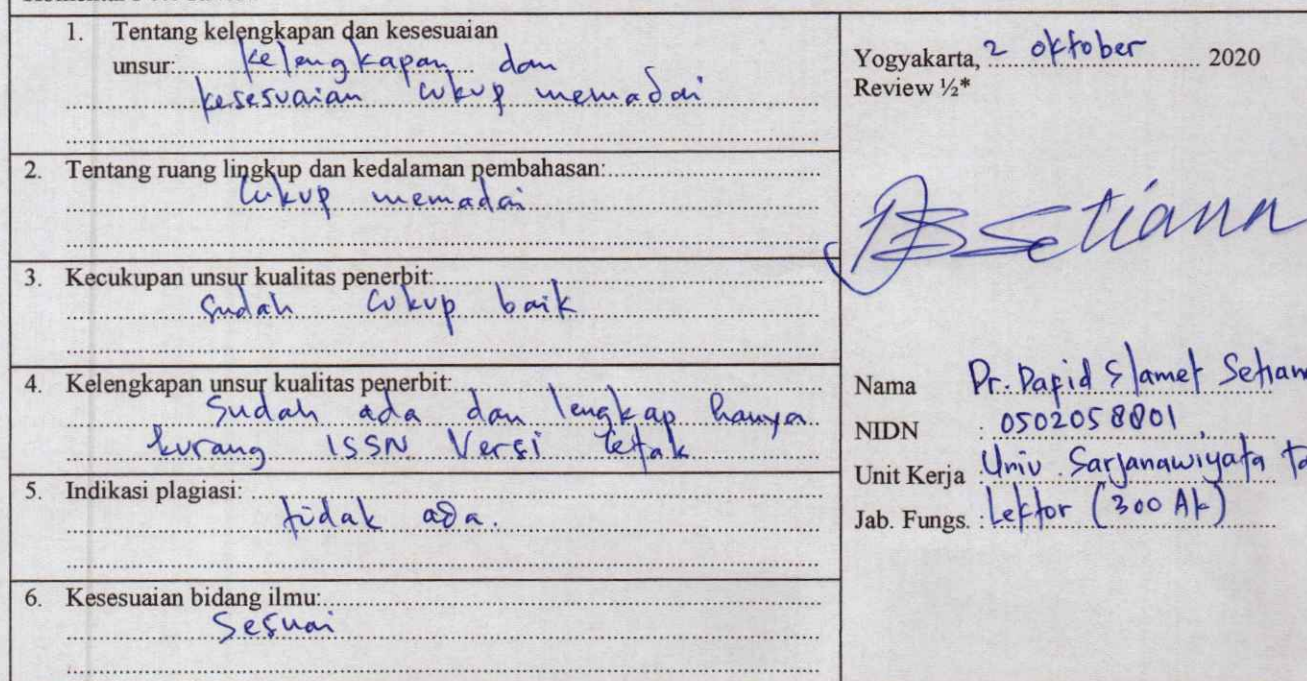 1. Tentang kelengkapan dan kesesuaian
unsur: kelengkapan dan
kesesuaian cukup memadai
2. Tentang ruang lingkup dan kedalaman pembahasan:
cukup memadai
3. Kecukupan unsur kualitas penerbit:
sudah cukup baik
4. Kelengkapan unsur kualitas penerbit:
sudah ada dan lengkap hanya
kurang ISSN Versi Cetak
5. Indikasi plagiasi:
tidak ada.
6. Kesesuaian bidang ilmu:
Sesuai
Yogyakarta, 2 oktober 2020
Review ½*
Setiana
Nama Dr. Dafid Slamet Setian
NIDN : 0502058801
Unit Kerja Univ. Sarjanawiyata Ta
Jab. Fungs. : Lektor (300 Ak)